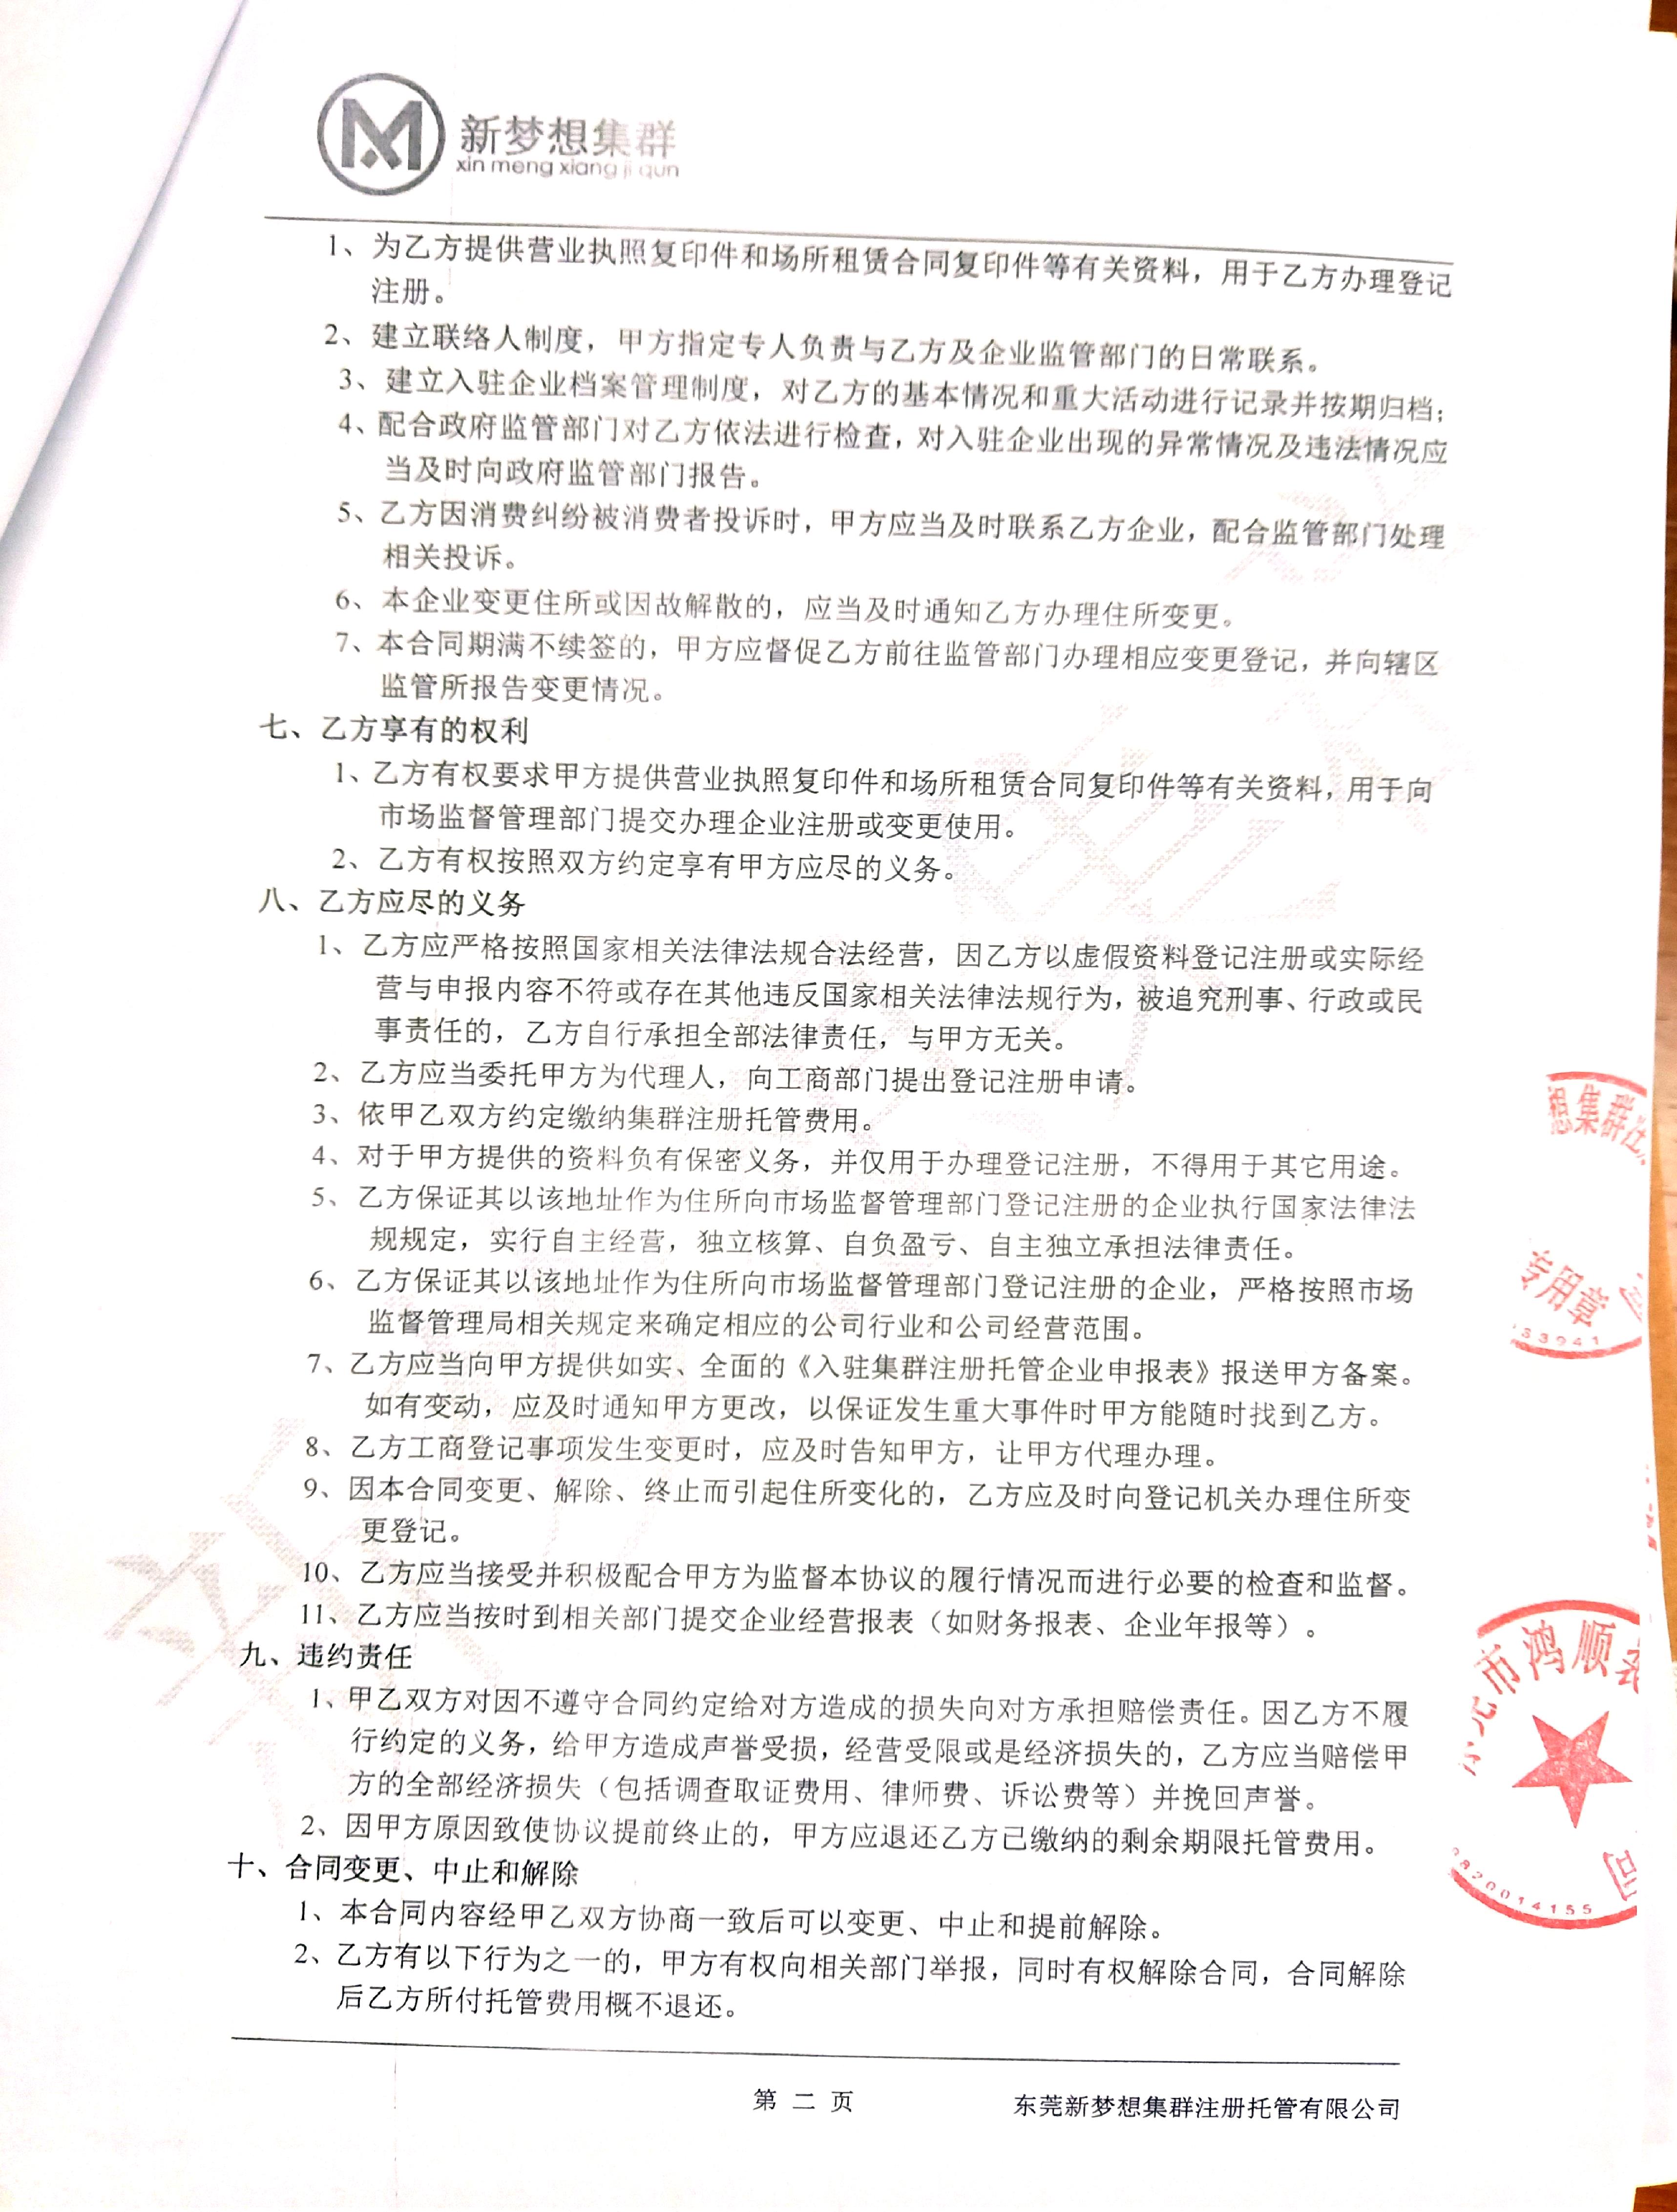 新梦想集群
xin meng xiang ji qun
1、为乙方提供营业执照复印件和场所租赁合同复印件等有关资料，用于乙方办理登记
注册。
2、建立联络人制度，甲方指定专人负责与乙方及企业监管部门的日常联系。
3、建立入驻企业档案管理制度，对乙方的基本情况和重大活动进行记录并按期归档；
4、配合政府监管部门对乙方依法进行检查，对入驻企业出现的异常情况及违法情况应
当及时向政府监管部门报告。
5、乙方因消费纠纷被消费者投诉时，甲方应当及时联系乙方企业，配合监管部门处理
相关投诉。
6、本企业变更住所或因故解散的，应当及时通知乙方办理住所变更。
7、本合同期满不续签的，甲方应督促乙方前往监管部门办理相应变更登记，并向辖区
监管所报告变更情况。
七、乙方享有的权利
1、乙方有权要求甲方提供营业执照复印件和场所租赁合同复印件等有关资料，用于向
市场监督管理部门提交办理企业注册或变更使用。
2、乙方有权按照双方约定享有甲方应尽的义务。
八、乙方应尽的义务
1、乙方应严格按照国家相关法律法规合法经营，因乙方以虚假资料登记注册或实际经
营与申报内容不符或存在其他违反国家相关法律法规行为，被追究刑事、行政或民
事责任的，乙方自行承担全部法律责任，与甲方无关。
2、乙方应当委托甲方为代理人，向工商部门提出登记注册申请。
3、依甲乙双方约定缴纳集群注册托管费用。
4、对于甲方提供的资料负有保密义务，并仅用于办理登记注册，不得用于其它用途。
5、乙方保证其以该地址作为住所向市场监督管理部门登记注册的企业执行国家法律法
规规定，实行自主经营，独立核算、自负盈亏、自主独立承担法律责任。
6、乙方保证其以该地址作为住所向市场监督管理部门登记注册的企业，严格按照市场
监督管理局相关规定来确定相应的公司行业和公司经营范围。
7、乙方应当向甲方提供如实、全面的《入驻集群注册托管企业申报表》报送甲方备案。
如有变动，应及时通知甲方更改，以保证发生重大事件时甲方能随时找到乙方。
8、乙方工商登记事项发生变更时，应及时告知甲方，让甲方代理办理。
9、因本合同变更、解除、终止而引起住所变化的，乙方应及时向登记机关办理住所变
更登记。
10、乙方应当接受并积极配合甲方为监督本协议的履行情况而进行必要的检查和监督。
11、乙方应当按时到相关部门提交企业经营报表（如财务报表、企业年报等）。
九、违约责任
1、甲乙双方对因不遵守合同约定给对方造成的损失向对方承担赔偿责任。因乙方不履
行约定的义务，给甲方造成声誉受损，经营受限或是经济损失的，乙方应当赔偿甲
方的全部经济损失（包括调查取证费用、律师费、诉讼费等）并挽回声誉。
2、因甲方原因致使协议提前终止的，甲方应退还乙方已缴纳的剩余期限托管费用。
十、合同变更、中止和解除
1、本合同内容经甲乙双方协商一致后可以变更、中止和提前解除。
2、乙方有以下行为之一的，甲方有权向相关部门举报，同时有权解除合同，合同解除
后乙方所付托管费用概不退还。
第 二 页
东莞新梦想集群注册托管有限公司
想集群注
专用章
33941
市鸿顺
司
820014155